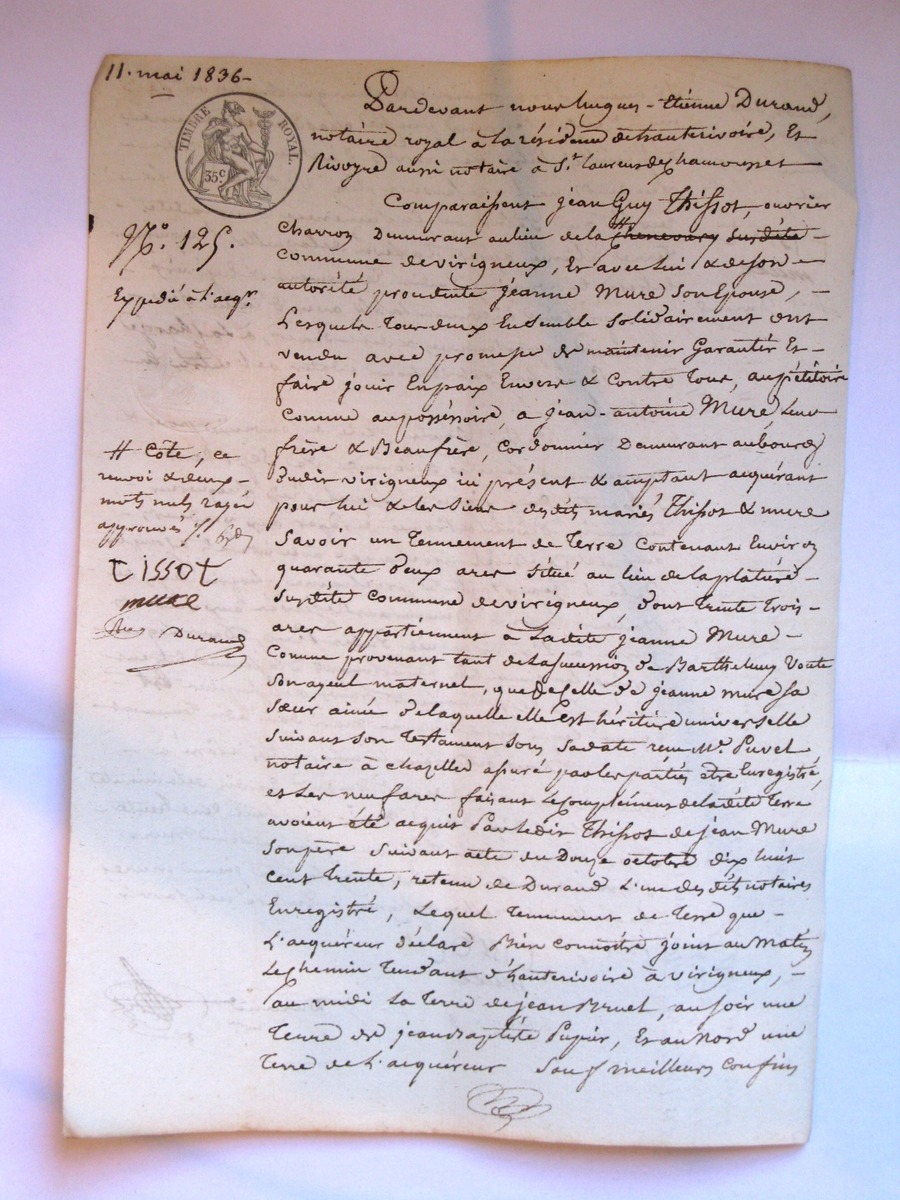 11. mai 1836-
TIMBRE ROYAL.
35c
Pardevant nous hugues - Etienne Durand,
notaire royal à la résidence d'hauterivoire, Et
Rivoyre aussi notaire à St. laurens de chamousset
Comparaissent jean Guy Thissot, ouvrier
Charron Demeurant au lieu de la Thenevary susdite -
Commune de virigneux, Et avec lui & de son -
autorité procedente jeanne Mure son Epouse, -
Lesquels Tous deux Ensemble solidairement ont
vendu avec promesse de maintenir Garantir Et -
faire jouir En paix Envers & Contre Tous, au pétitoire
Comme au posséssoire, a jean-antoine Mure, leur
frère & Beaufrère, Cordonnier Demeurant au bourg
dudit virigneux ici présent & acceptant acquérant
pour lui & les siens desdits mariés Thissot & mure
Savoir un Tennement de Terre Contenant Environ
quarante deux ares situé au lieu de la platière -
Susdite Commune de virigneux, dont trente trois -
ares appartiennent à Ladite jeanne Mure -
Comme provenant tant de la succession de Barthelemy
Son ayeul maternel, que de Celle de jeanne mure sa
Sœur ainée de laquelle elle Est héritière universelle
Suivant son Testament sous sa date reçu Me.
notaire à chazelles assuré par les parties être Enregistré,
et les neuf ares faisant Le Complément de ladite Terre
avoient été acquis Par ledit Thissot de jean Mure
Son père suivant acte du Douze octobre dix huit
Cent Trente, retenu de Durand L'un desdits notaires
Enregistré, Lequel Tennement de Terre que -
L'acquéreur déclare Bien connoitre joint au Matin
Le chemin Tendant d'hauterivoire à virigneux, -
au midi La Terre de jean Bruel, au soir une
Terre de jean Baptiste Pupier, Et au Nord une
Terre de L'acquéreur Sauf meilleurs confins
No. 125.
Expedié à l'acqr.
# Côte, ce
renvoi & deux -
mots nuls rayés
approuvés
tissot
mure
Durand